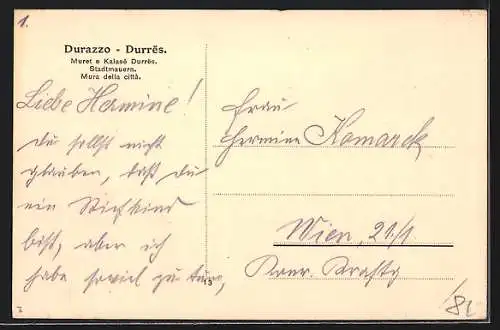 1.
Durazzo - Durrës.
Muret e Kalasë Durrës.
Stadtmauern.
Mura della città.
Liebe Hermine!
du sollst nicht
glauben, daß du
ein Stiefkind
bist, aber ich
habe soviel zu tun,
13
Frau
Hermine Komarek
Wien, 21/1